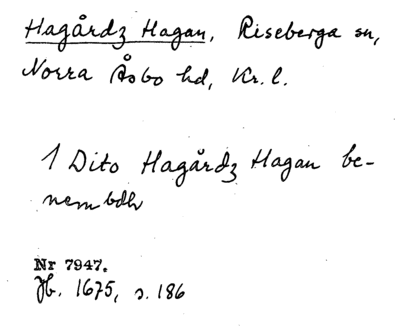 Hagårdz Hagan, Riseberga sn,
Norra Åsbo hd, Kr. l.
1 Dito Hagårdz Hagan be-
nembdh
Nr 7947.
Jb. 1675, s. 186